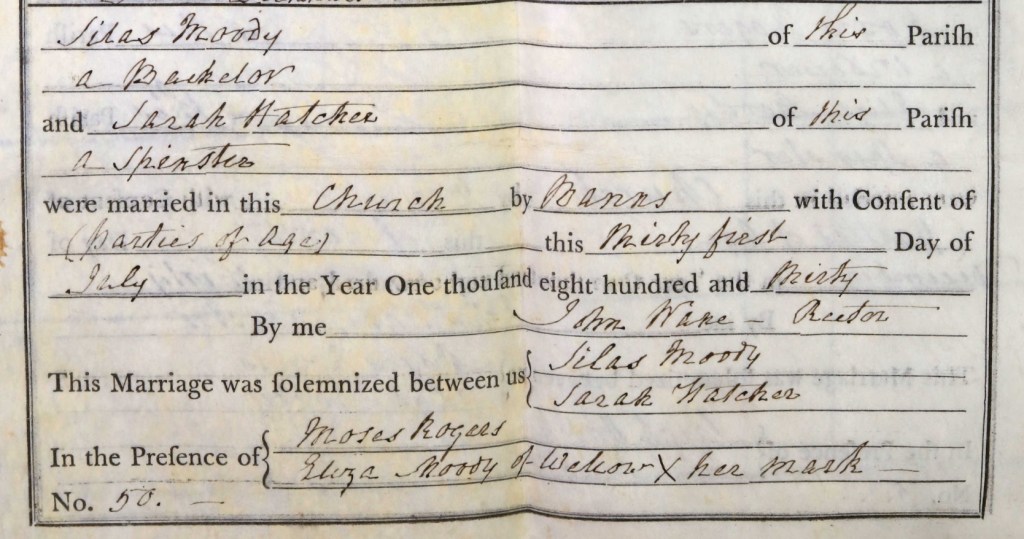 Silas Moody of this Pariſh
a Bachelor
and Sarah Hatcher of this Pariſh
a Spinster
were married in this Church by Banns with Conſent of
(parties of Age) this Thirty first Day of
July in the Year One thouſand eight hundred and Thirty
By me John Wake - Rector
This Marriage was ſolemnized between us { Silas Moody
Sarah Hatcher
In the Preſence of { Moses Rogers
Eliza Moody of X her mark
No. 50.